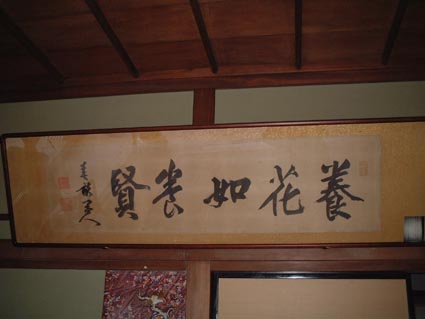 養花如養賢